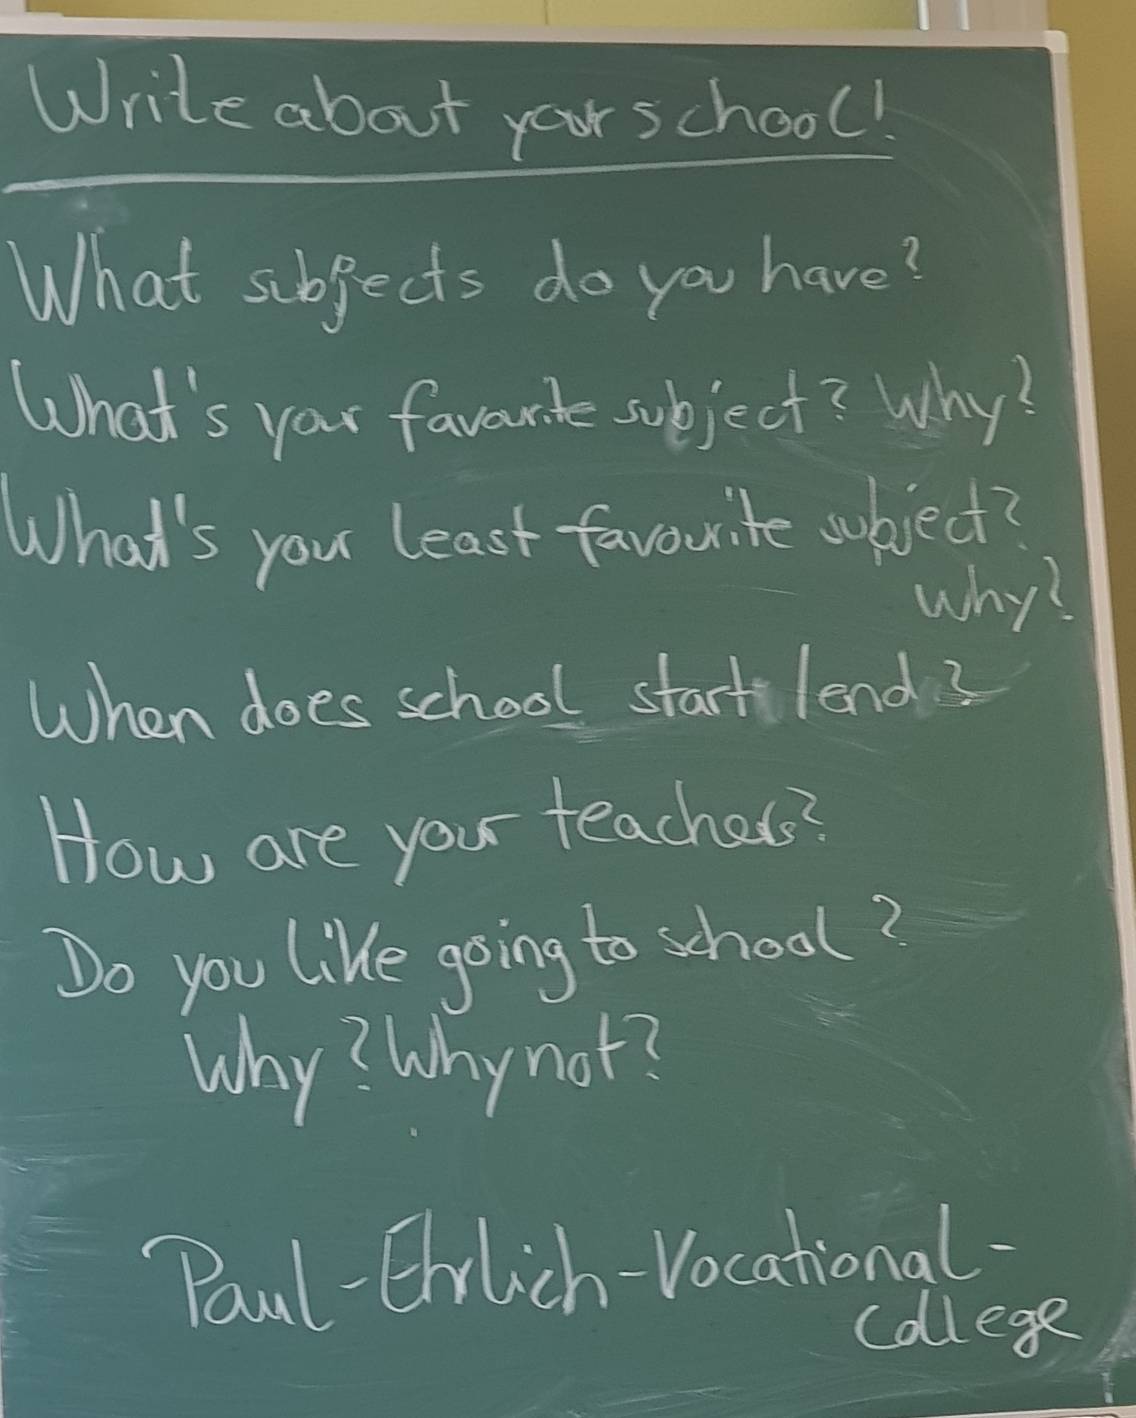 Write about your school!
What subjects do you have?
What's your favourite subject? Why?
What's your least favourite subject?
Why?
When does school start/end?
How are your teachers?
Do you like going to school?
Why? Why not?
Paul-Ehrlich-Vocational-
College